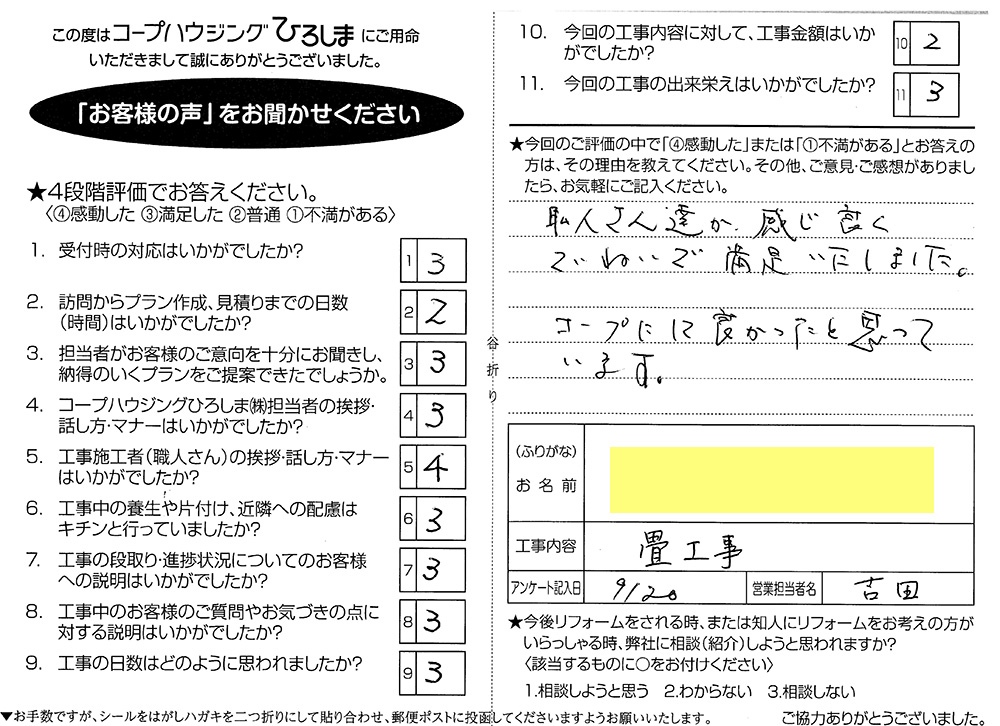 この度はコープハウジングひろしまにご用命
いただきまして誠にありがとうございました。
「お客様の声」をお聞かせください
★4段階評価でお答えください。
〈④感動した ③満足した ②普通 ①不満がある〉
1. 受付時の対応はいかがでしたか?
1 3
2. 訪問からプラン作成、見積りまでの日数
(時間)はいかがでしたか?
2 2
3. 担当者がお客様のご意向を十分にお聞きし、
納得のいくプランをご提案できたでしょうか。
3 3
4. コープハウジングひろしま㈱担当者の挨拶・
話し方・マナーはいかがでしたか?
4 3
5. 工事施工者(職人さん)の挨拶・話し方・マナー
はいかがでしたか?
5 4
6. 工事中の養生や片付け、近隣への配慮は
キチンと行っていましたか?
6 3
7. 工事の段取り・進捗状況についてのお客様
への説明はいかがでしたか?
7 3
8. 工事中のお客様のご質問やお気づきの点に
対する説明はいかがでしたか?
8 3
9. 工事の日数はどのように思われましたか?
9 3
▼お手数ですが、シールをはがしハガキを二つ折りにして貼り合わせ、郵便ポストに投函してくださいますようお願いいたします。
谷折り
10. 今回の工事内容に対して、工事金額はいか
がでしたか?
10 2
11. 今回の工事の出来栄えはいかがでしたか?
11 3
★今回のご評価の中で「④感動した」または「①不満がある」とお答えの
方は、その理由を教えてください。その他、ご意見・ご感想がありまし
たら、お気軽にご記入ください。
人さん達が、感じ良く
ていねいで満足いたしました。
コープにして良かったと思って
います。
(ふりがな)
お名前
工事内容 畳工事
アンケート記入日 9/20 営業担当者名 吉田
★今後リフォームをされる時、または知人にリフォームをお考えの方が
いらっしゃる時、弊社に相談(紹介)しようと思われますか?
〈該当するものに○をお付けください〉
1.相談しようと思う 2.わからない 3.相談しない
ご協力ありがとうございました。